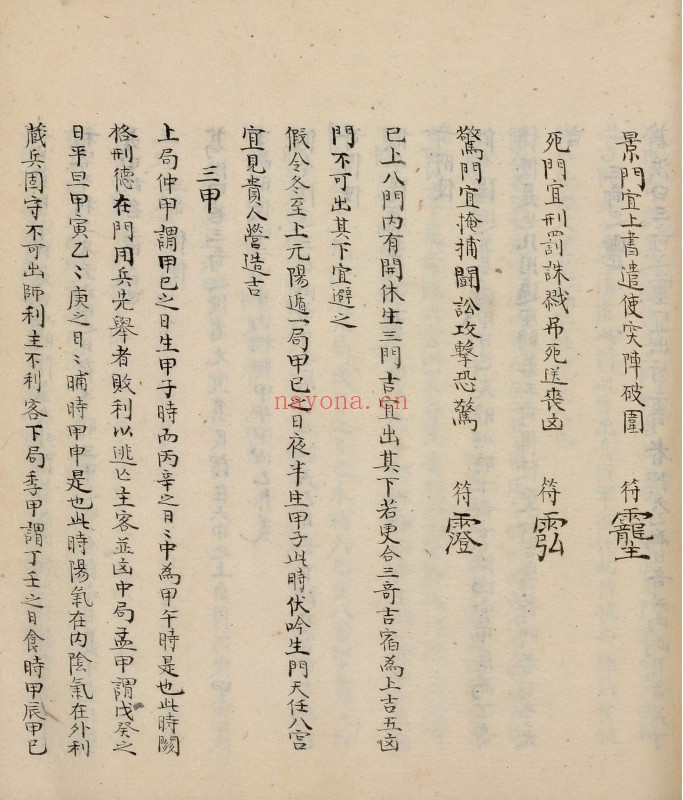 景門宜上書遣使突陣破圍 符
死門宜刑罰誅戮吊死送喪凶 符
驚門宜掩捕鬪訟攻擊恐驚 符
已上八門內有開休生三門吉宜出其下若更合三奇吉宿為上吉五凶
門不可出其下宜避之
假令冬至上元陽遁一局甲巳之日夜半生甲子此時伏吟生門天任八宮
宜見貴人營造吉
三甲
上局仲甲謂甲巳之日生甲子時而丙辛之日〻中為甲午時是也此時關
格刑德在門用兵先舉者敗利以逃亡主客並凶中局孟甲謂戊癸之
日平旦甲寅乙〻庚之日〻晡時甲申是也此時陽氣在內陰氣在外利
藏兵固守不可出師利主不利客下局季甲謂丁壬之日食時甲辰甲巳
nayona.cn